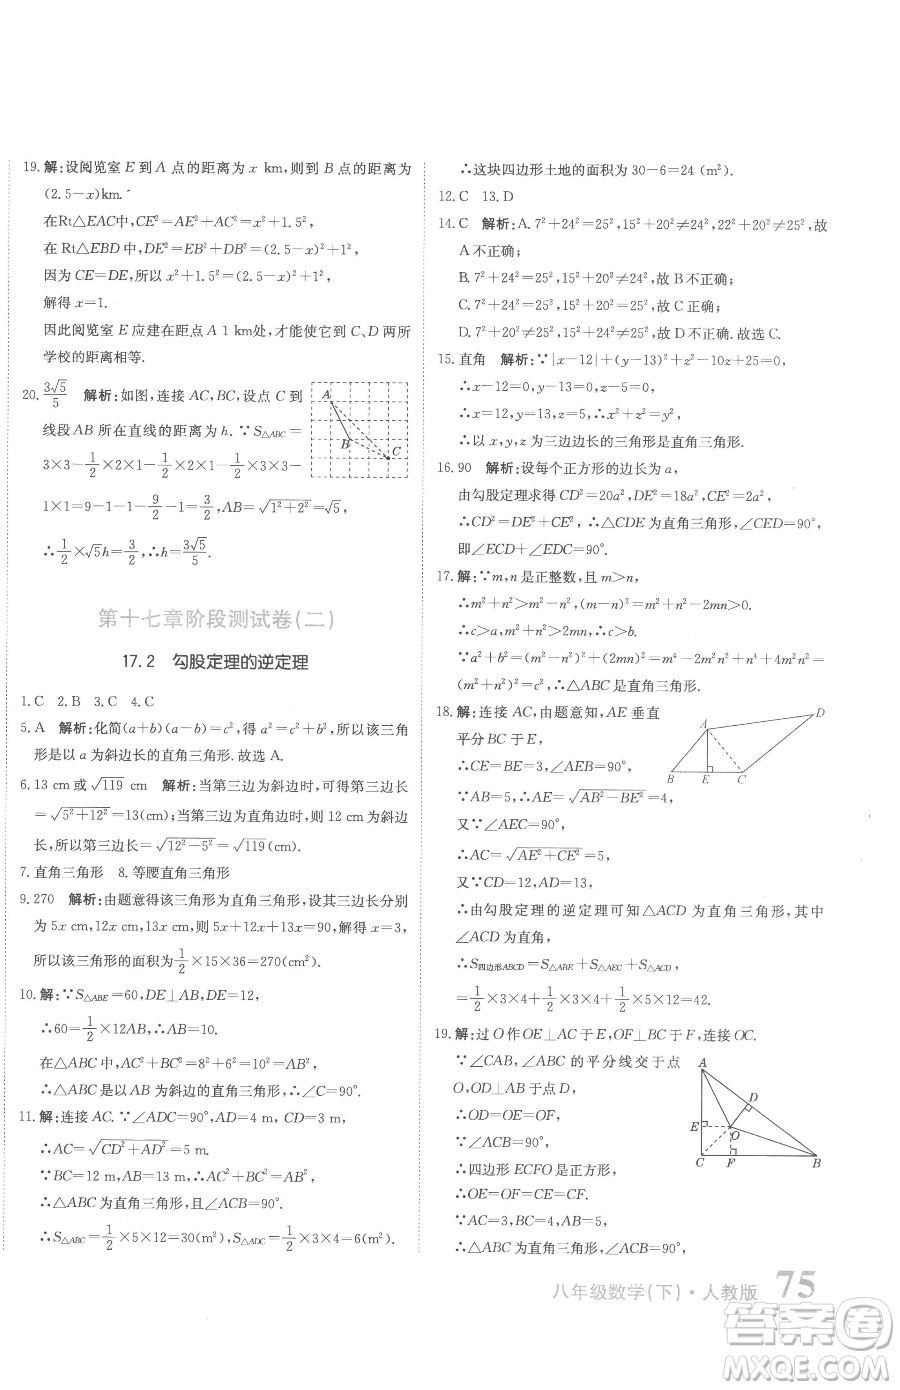 19. 解:设阅览室 E 到 A 点的距离为 x km,则到 B 点的距离为
(2.5-x)km.
在Rt△EAC中,CE²=AE²+AC²=x²+1.5²,
在 Rt△EBD 中,DE²=EB²+BD²=(2.5-x)²+1²,
因为 CE=DE,所以 x²+1.5²=(2.5-x)²+1²,
解得 x=1.
因此阅览室 E 应建在距点 A 1 km处,才能使它到 C、D 两所
学校的距离相等.
20. 3√5/5 解析:如图,连接 AC,BC,设点 C 到
线段 AB 所在直线的距离为 h. ∵S△ABC=
3×3-1/2×2×1-1/2×2×1-1/2×3×3-
1×1=9-1-1-9/2-1=3/2,AB=√(1²+2²)=√5,
∴1/2×√5h=3/2,∴h=3√5/5.
A
B
C
第十七章阶段测试卷(二)
17.2 勾股定理的逆定理
1. C 2. B 3. C 4. C
5. A 解析:化简(a+b)(a-b)=c²,得 a²=b²+c²,所以该三角
形是以 a 为斜边长的直角三角形. 故选 A.
6. 13 cm或√119 cm 解析:当第三边为斜边时,可得第三边长
=√(5²+12²)=13(cm);当第三边为直角边时,则 12 cm 为斜边
长,可得第三边长=√(12²-5²)=√119(cm).
7. 直角三角形 8. 等腰直角三角形
9. 270 解析:由题意得该三角形为直角三角形,设三边长分别
为 5x cm,12x cm,13x cm,则 5x+12x+13x=90,解得 x=3,
所以该三角形的面积为1/2×15×36=270(cm²).
10. 解:∵S△ABE=60,DE⊥AB,DE=12,
∴60=1/2×12AB,∴AB=10.
在△ABC 中,AC²+BC²=8²+6²=10²=AB²,
∴△ABC 是以 AB 为斜边的直角三角形,∴∠C=90°.
11. 解:连接 AC. ∵∠ADC=90°,AD=4 m,CD=3 m,
∴AC=√(CD²+AD²)=5 m.
∵BC=12 m,AB=13 m,∴AC²+BC²=AB²,
∴△ABC 为直角三角形,且∠ACB=90°.
∴S△ABC=1/2×5×12=30(m²),S△ADC=1/2×3×4=6(m²).
∴这块四边形土地的面积为 30-6=24 (m²).
12. C 13. D
14. C 解析:A. 7²+24²=25²,15²+20²≠24²,22²+20²≠25²,故
A 不正确;
B. 7²+24²=25²,15²+20²≠24²,故 B 不正确;
C. 7²+24²=25²,15²+20²=25²,故 C 正确;
D. 7²+20²≠25²,24²+15²≠25²,故 D 不正确. 故选 C.
15. 直角 解析:∵|x-12|+(y-13)²+z²-10z+25=0,
∴x-12=0,y-13=0,z-5=0,
∴x=12,y=13,z=5,∴x²+z²=y²,
∴以 x,y,z为三边边长的三角形是直角三角形.
16. 90 解析:设每个正方形的边长为 a,
由勾股定理求得 CD²=20a²,DE²=18a²,CE²=2a²,
∴CD²=DE²+CE²,∴△CDE 为直角三角形,∠CED=90°,
即∠ECD+∠EDC=90°.
17. 解:∵m,n 是正整数,且 m>n,
∴m²+n²>m²-n²,(m-n)²=m²+n²-2mn>0.
∴c>a,m²+n²>2mn,∴c>b.
∵a²+b²=(m²-n²)²+(2mn)²=m⁴+n⁴+2m²n²=
(m²+n²)²=c²,∴△ABC 是直角三角形.
18. 解:连接 AC,由题意知,AE 垂直
平分 BC 于 E,
∴CE=BE=3,∠AEB=90°.
∵AB=5,∴AE=√(AB²-BE²)=4,
又∵∠AEC=90°,
∴AC=√(AE²+CE²)=5,
又∵CD=12,AD=13,
∴由勾股定理的逆定理可知△ACD 为直角三角形,其中
∠ACD 为直角,
∴S四边形ABCD=S△ABE+S△AEC+S△ACD,
=1/2×3×4+1/2×3×4+1/2×5×12=42.
A
D
B
E
C
19. 解:过 O 作 OE⊥AC 于 E,OF⊥BC 于 F,连接 OC.
∵∠CAB、∠ABC 的平分线交于点
O,OD⊥AB 于点 D,
∴OD=OE=OF,
∵∠ACB=90°,
∴四边形 ECFO 是正方形,
∴CE=CF=OE=OF,
∵∠ACB=90°,
∴△ABC 为直角三角形,
A
D
E
O
C
F
B
八年级数学(下)·人教版 75
答案圈
MXQE.COM